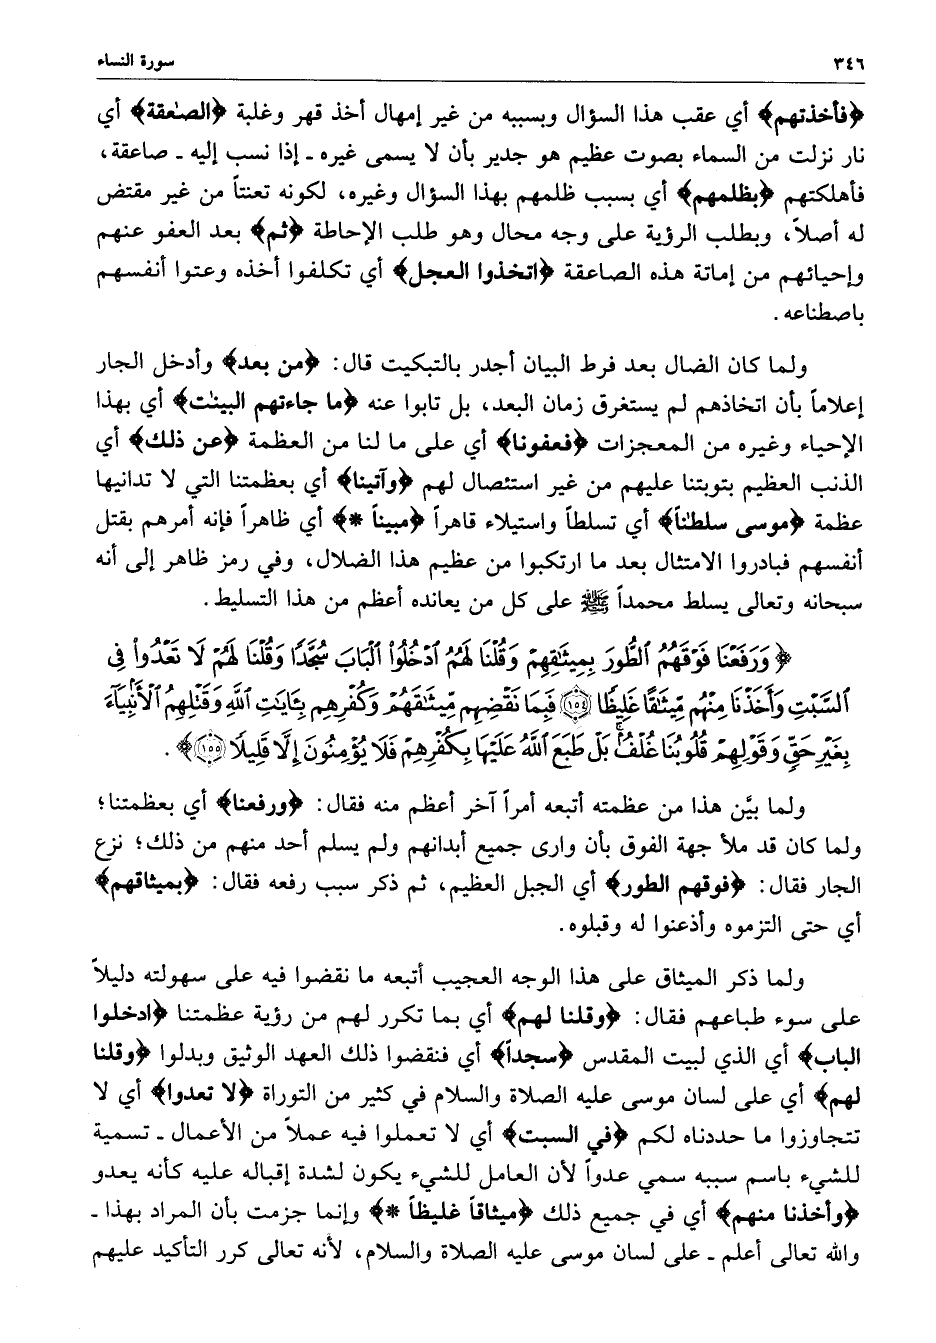 ٣٤٦ سورة النساء
﴿فأخذتهم﴾ أي عقب هذا السؤال وبسببه من غير إمهال أخذ قهر وغلبة ﴿الصٰعقة﴾ أي
نار نزلت من السماء بصوت عظيم هو جدير بأن لا يسمى غيره ـ إذا نسب إليه ـ صاعقة،
فأهلكتهم ﴿بظلمهم﴾ أي بسبب ظلمهم بهذا السؤال وغيره، لكونه تعنتاً من غير مقتض
له أصلاً، وبطلب الرؤية على وجه محال وهو طلب الإحاطة ﴿ثم﴾ بعد العفو عنهم
وإحيائهم من إماتة هذه الصاعقة ﴿اتخذوا العجل﴾ أي تكلفوا أخذه وعتوا أنفسهم
باصطناعه.
ولما كان الضال بعد فرط البيان أجدر بالتبكيت قال: ﴿من بعد﴾ وأدخل الجار
إعلاماً بأن اتخاذهم لم يستغرق زمان البعد، بل تابوا عنه ﴿ما جاءتهم البينٰت﴾ أي بهذا
الإحياء وغيره من المعجزات ﴿فعفونا﴾ أي على ما لنا من العظمة ﴿عن ذلك﴾ أي
الذنب العظيم بتوبتنا عليهم من غير استئصال لهم ﴿وآتينا﴾ أي بعظمتنا التي لا تدانيها
عظمة ﴿موسى سلطٰناً﴾ أي تسلطاً واستيلاء قاهراً ﴿مبيناً *﴾ أي ظاهراً فإنه أمرهم بقتل
أنفسهم فبادروا الامتثال بعد ما ارتكبوا من عظيم هذا الضلال، وفي رمز ظاهر إلى أنه
سبحانه وتعالى يسلط محمداً ﷺ على كل من يعانده أعظم من هذا التسليط.
﴿وَرَفَعْنَا فَوْقَهُمُ ٱلطُّورَ بِمِيثَٰقِهِمْ وَقُلْنَا لَهُمُ ٱدْخُلُوا۟ ٱلْبَابَ سُجَّدًا وَقُلْنَا لَهُمْ لَا تَعْدُوا۟ فِى
ٱلسَّبْتِ وَأَخَذْنَا مِنْهُم مِّيثَٰقًا غَلِيظًا ١٥٤ فَبِمَا نَقْضِهِم مِّيثَٰقَهُمْ وَكُفْرِهِم بِـَٔايَٰتِ ٱللَّهِ وَقَتْلِهِمُ ٱلْأَنۢبِيَآءَ
بِغَيْرِ حَقٍّ وَقَوْلِهِمْ قُلُوبُنَا غُلْفٌۢ بَلْ طَبَعَ ٱللَّهُ عَلَيْهَا بِكُفْرِهِمْ فَلَا يُؤْمِنُونَ إِلَّا قَلِيلًا ١٥٥﴾.
ولما بيَّن هذا من عظمته أتبعه أمراً آخر أعظم منه فقال: ﴿ورفعنا﴾ أي بعظمتنا؛
ولما كان قد ملأ جهة الفوق بأن وارى جميع أبدانهم ولم يسلم أحد منهم من ذلك؛ نزع
الجار فقال: ﴿فوقهم الطور﴾ أي الجبل العظيم، ثم ذكر سبب رفعه فقال: ﴿بميثاقهم﴾
أي حتى التزموه وأذعنوا له وقبلوه.
ولما ذكر الميثاق على هذا الوجه العجيب أتبعه ما نقضوا فيه على سهولته دليلاً
على سوء طباعهم فقال: ﴿وقلنا لهم﴾ أي بما تكرر لهم من رؤية عظمتنا ﴿ادخلوا
الباب﴾ أي الذي لبيت المقدس ﴿سجداً﴾ أي فنقضوا ذلك العهد الوثيق وبدلوا ﴿وقلنا
لهم﴾ أي على لسان موسى عليه الصلاة والسلام في كثير من التوراة ﴿لا تعدوا﴾ أي لا
تتجاوزوا ما حددناه لكم ﴿في السبت﴾ أي لا تعملوا فيه عملاً من الأعمال ـ تسمية
للشيء باسم سببه سمي عدواً لأن العامل للشيء يكون لشدة إقباله عليه كأنه يعدو
﴿وأخذنا منهم﴾ أي في جميع ذلك ﴿ميثاقاً غليظاً *﴾ وإنما جزمت بأن المراد بهذا ـ
والله تعالى أعلم ـ على لسان موسى عليه الصلاة والسلام، لأنه تعالى كرر التأكيد عليهم